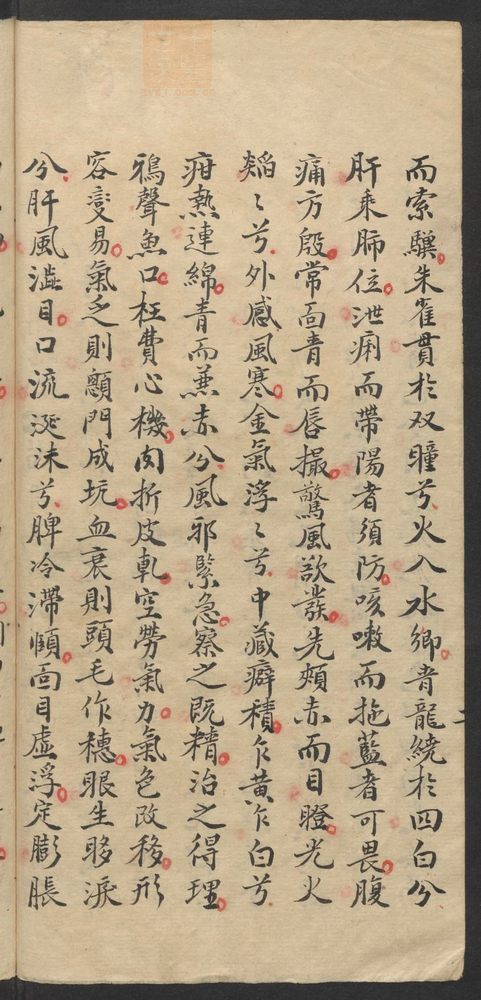 而索驥朱雀貫於双瞳兮火入水鄉青龍繞於四白兮
肝乘肺位泄痢而帶陽者須防咳嗽而拖藍者可畏腹
痛方殷常面青而唇撮驚風欲發先頰赤而目瞪光火
熖〻兮外感風寒金氣浮〻兮中藏癖積乍黄乍白兮
疳熱連綿青而兼赤兮風邪緊急察之既精治之得理
鴉聲魚口枉費心機肉折皮乹空勞氣力氣色改移形
容變易氣乏則顖門成坑血衰則頭毛作穗眼生眵淚
兮肝風澁目口流涎沫兮脾冷滯頤面目虛浮定膨脹